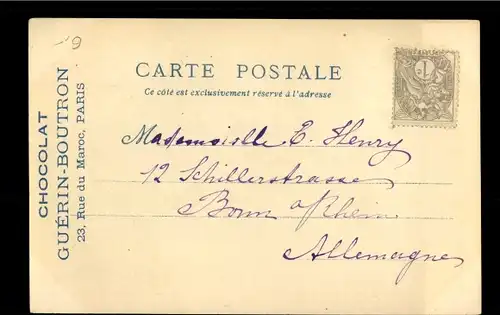 CARTE POSTALE
Ce côté est exclusivement réservé à l'adresse
Mademoiselle E. Henry
12 Schillerstrasse
Bonn a/Rhein
Allemagne
CHOCOLAT
GUÉRIN-BOUTRON
23, Rue du Maroc, PARIS
1